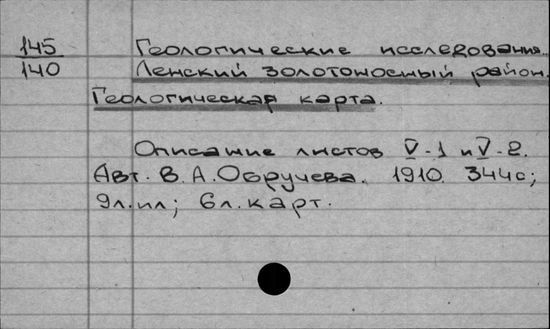 145 Геологические исследования.
140 Ленский золотоносный район.
Геологическая карта.
Описание листов V-1 и V-2.
Авт. В. А. Обручева. 1910. 344с;
9л.ил; 6л.карт.